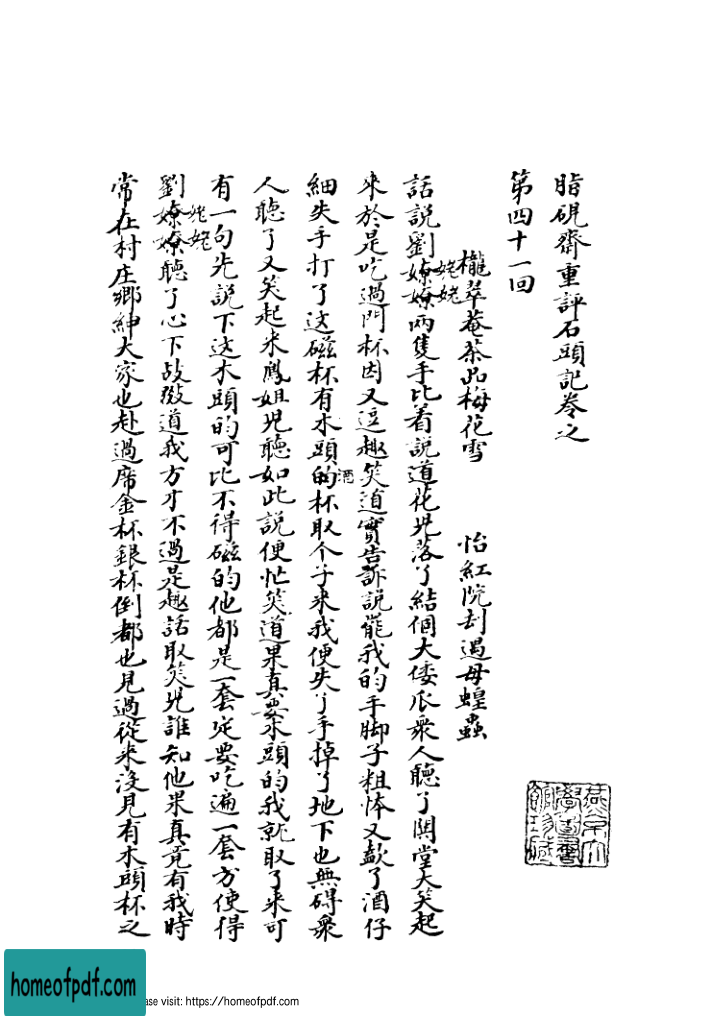 脂硯齋重評石頭記卷之
第四十一回
櫳翠菴茶品梅花雪 怡紅院刦遇母蝗蟲
話說劉嫽嫽兩隻手比着說道花兒落了結個大倭瓜衆人聽了鬨堂大笑起
姥姥
來於是吃過門杯因又逗趣笑道實告訴說罷我的手脚子粗体又歖了酒仔
細失手打了这磁杯有木頭的杯取个子來我便失了手掉了地下也無碍衆
酒
人聽了又笑起來鳳姐兒聽如此說便忙笑道果真要木頭的我就取了來可
有一句先說下这木頭的可比不得磁的他都是一套定要吃遍一套方使得
劉嫽嫽聽了心下故敠道我方才不過是趣話取笑兒誰知他果真竟有我時
姥姥
常在村庄鄉紳大家也赴過席金杯銀杯倒都也見過從來沒見有木頭杯之
燕京大學圖書館珍藏
homeofpdf.com
ase visit: https://homeofpdf.com